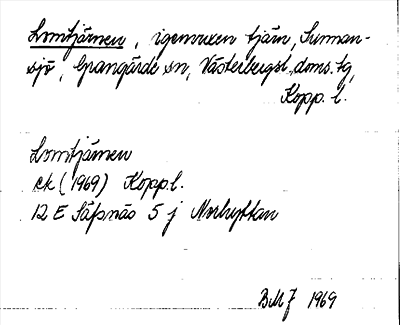 Lomtjärnen, igenvuxen tjärn, Sunnan-
sjö, Grangärde sn, Västerbergsl. doms. tg,
Kopp. l.
Lomtjärnen
ek (1969) Kopp. l.
12 E Säfsnäs 5 j Norhyttan
BMJ 1969